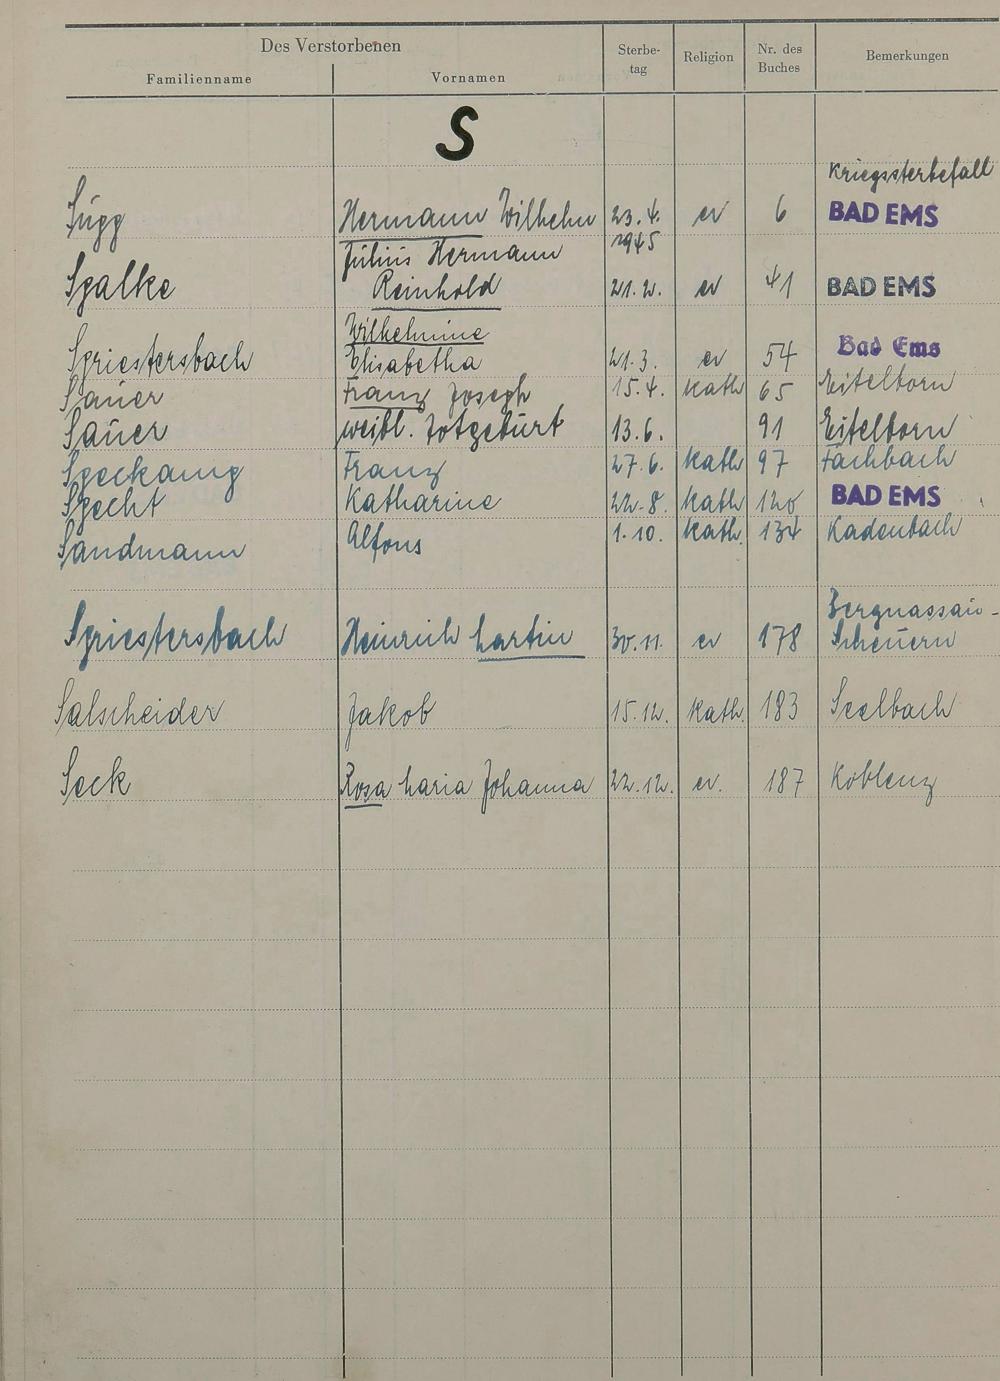 Des Verstorbenen
Familienname Vornamen Sterbe-tag Religion Nr. des Buches Bemerkungen
S
Kriegssterbefall
Sugg Hermann Wilhelm 23.4. ev 6 BAD EMS
1945
Julius Hermann
Spalke Reinhold 21.2. ev 41 BAD EMS
Wilhelmine
Spriestersbach Elisabetha 21.3. ev 54 Bad Ems
Sauer Franz Joseph 15.4. kath 65 Eitelborn
Sauer weibl. Totgeburt 13.6. 91 Eitelborn
Franz 27.6. kath 97 Fachbach
Specht Katharine 22.8. kath 120 BAD EMS
Sandmann Alfons 1.10. kath. 134 Kadenbach
Bergnassau-
Spriestersbach Heinrich Martin 30.11. ev 178 Scheuern
Salscheider Jakob 15.12. kath. 183 Seelbach
Seck Rosa Maria Johanna 22.12. ev. 187 Koblenz